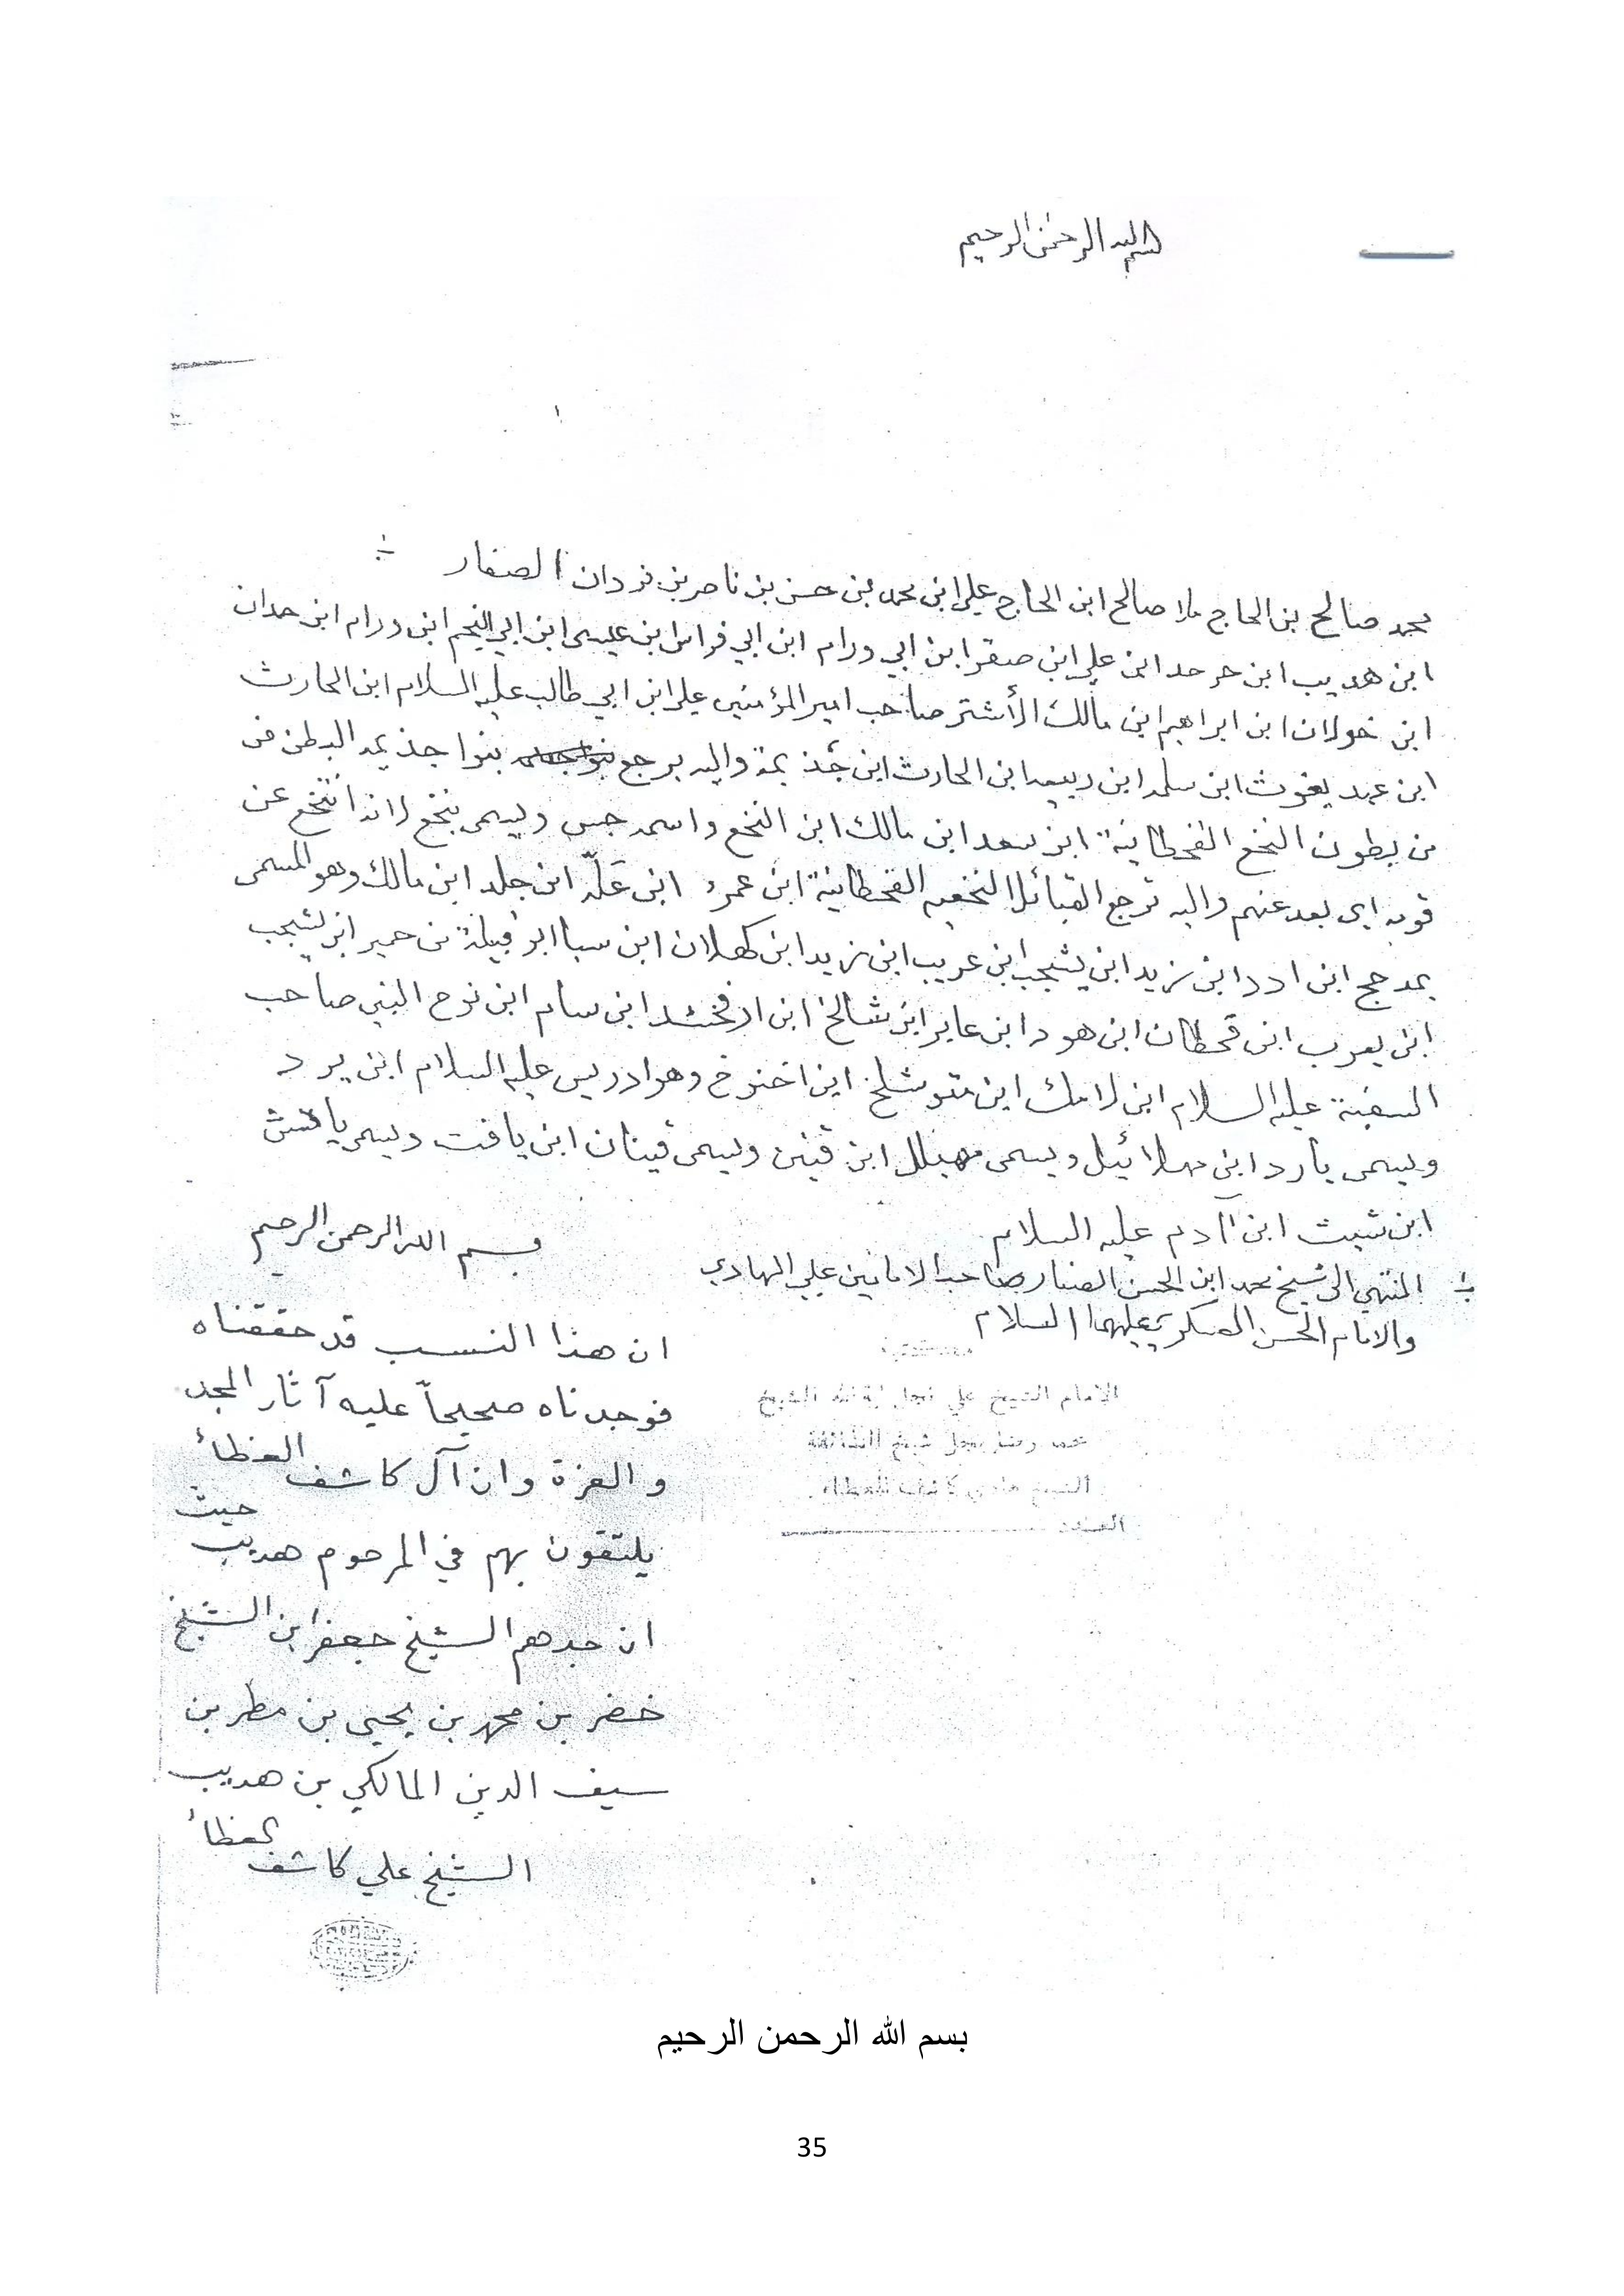 بسم الله الرحمن الرحيم
محمد صالح بن الحاج ملا صالح ابن الحاج علي ابن محمد بن حسن بن ناصر بن الصفار ÷
ابن هديب ابن علي ابن صقر ابن ابي ورام ابن ابي فراس ابن عيسى ابن ابي النجم ابن ورام ابن حمدان
ابن خولان ابن ابراهيم ابن مالك الأشتر صاحب امير المؤمنين علي ابن ابي طالب عليه السلام ابن الحارث
ابن عبد يغوث ابن سلمه ابن ربيعه ابن الحارث ابن جذيمة واليه يرجع بنوا جذيمه البطن من
من بطون النخع القحطانية ابن سعد ابن مالك ابن النخع واسمه جس ويسمى بنخع لانه انتخع عن
قومه اي بعد عنهم واليه ترجع القبائل النخعيه القحطانية ابن عمرو ابن علّه ابن جلد ابن مالك وهو المسمى
بمدحج ابن ادد ابن زيد ابن يشجب ابن عريب ابن زيد ابن كهلان ابن سبا ابو قبيلة من حمير ابن يشجب
ابن يعرب ابن قحطان ابن هود ابن عابر ابن شالخ ابن ارفخشد ابن سام ابن نوح النبي صاحب
السفينة عليه السلام ابن لامك ابن متوشلخ ابن اخنوخ وهو ادريس عليه السلام ابن يرد
ويسمى يارد ابن مهلائيل ويسمى مهيلل ابن قينن ويسمى قينان ابن يافت ويسمى
ابن شيث ابن آدم عليه السلام
÷ المنتهي الى شيخ محمد ابن الحسن الصفار صاحب الامامين علي الهادي
والامام الحسن العسكري عليهما السلام
بسم الله الرحمن الرحيم
ان هذا النسب قد حققناه
فوجدناه صحيحاً عليه آثار المجد
والعزة وان آل كاشف الغطاء
يلتقون بهم في المرحوم هديب حيث
ان جدهم الشيخ جعفر ابن الشيخ
خضر بن محمد بن يحيى بن مطر بن
سيف الدين المالكي بن هديب
الشيخ علي كاشف الغطاء
بسم الله الرحمن الرحيم
35